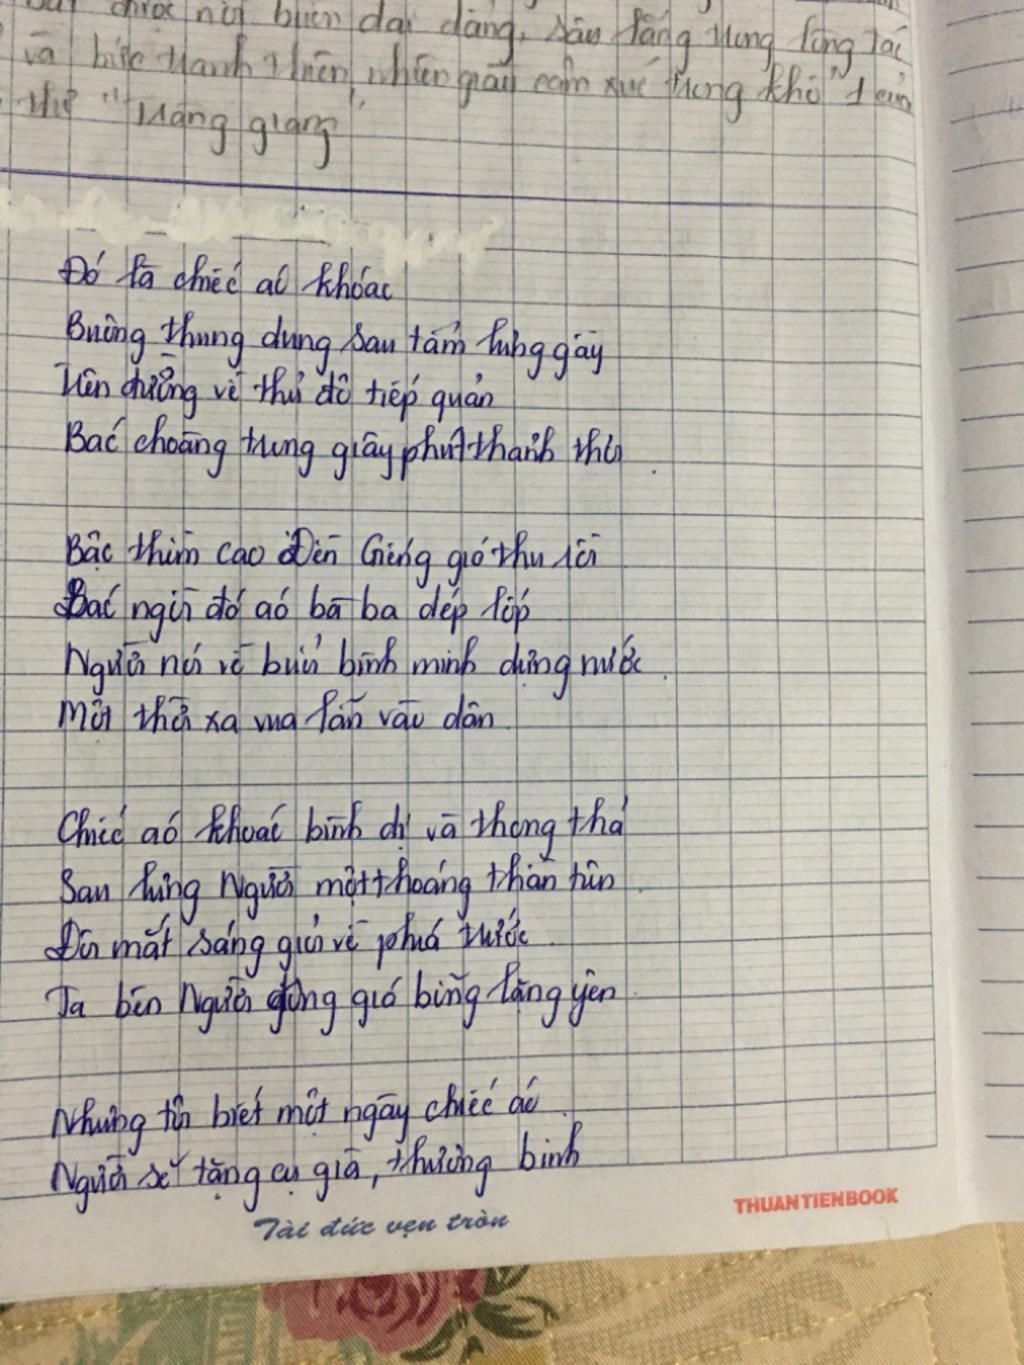 được nỗi buồn dai dẳng, sâu lắng trong lòng tác
và bức tranh thiên nhiên giàu cảm xúc trong khổ 1 của
thơ "Tràng giang"
Đó là chiếc áo khoác
Buông thung dung sau tấm lưng gầy
Trên đường về thủ đô tiếp quản
Bác choàng trong giây phút thảnh thơi
Bậc thềm cao Đền Giếng gió thu rồi
Bác ngồi đó áo bà ba dép lốp
Người nói về buổi bình minh dựng nước
Một thời xa xưa lắn vào dân
Chiếc áo khoác bình dị và thong thả
Sau lưng Người một thoáng thần tiên
Đôi mắt sáng gửi về phía trước
Ta bên Người dông gió bỗng lặng yên
Nhưng tôi biết một ngày chiếc áo
Người sẽ tặng cụ già, thương binh
Tài đức vẹn tròn
THUANTIENBOOK